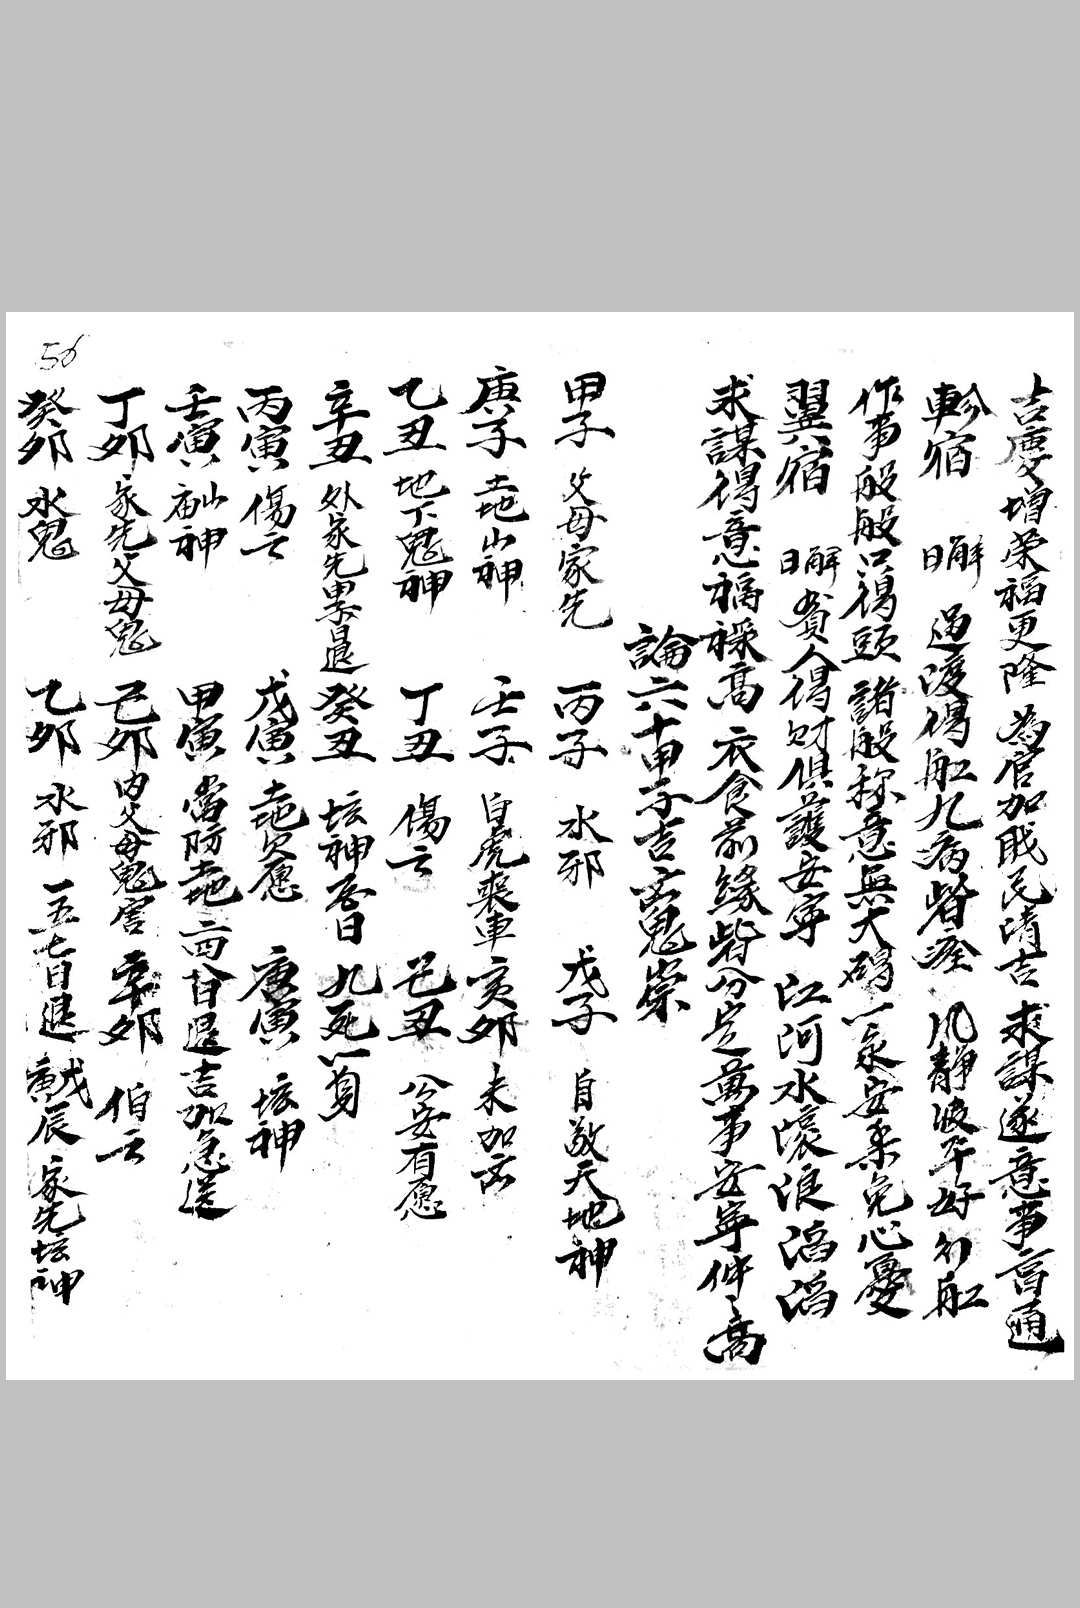 56
吉慶增荣福更隆 為官加戝民清吉 求謀遂意事言通
軫宿 解日 過渡得舡九病皆痊 風静波平好行舡
作事般般只得頭 諸般称意無大碍 一家安楽免心憂
翼宿 解日 貧人得财俱護安寧 江河水濃浪滔滔
求謀得意福禄高 衣食前緣皆分定 萬事安寧件々高
論六十甲子吉凶鬼祟
甲子 父母家先 丙子 水邪 戊子 自敬天地神
庚子 土地山神 壬子 白虎喪車 亥卯 未加凶
乙丑 地下鬼神 丁丑 傷亡 己丑 公安有愿
辛丑 外家先 退 癸丑 坛神 日 九死一
丙寅 傷亡 戊寅 土地欠愿 庚寅 坛神
壬寅 山庙神 甲寅 當防土地 二四廿退吉加急送
丁卯 家先父母鬼 己卯 内父母鬼害 辛卯 伯亡
癸卯 水鬼 乙卯 水邪 一五七日退 戊寅辰 家先坛神